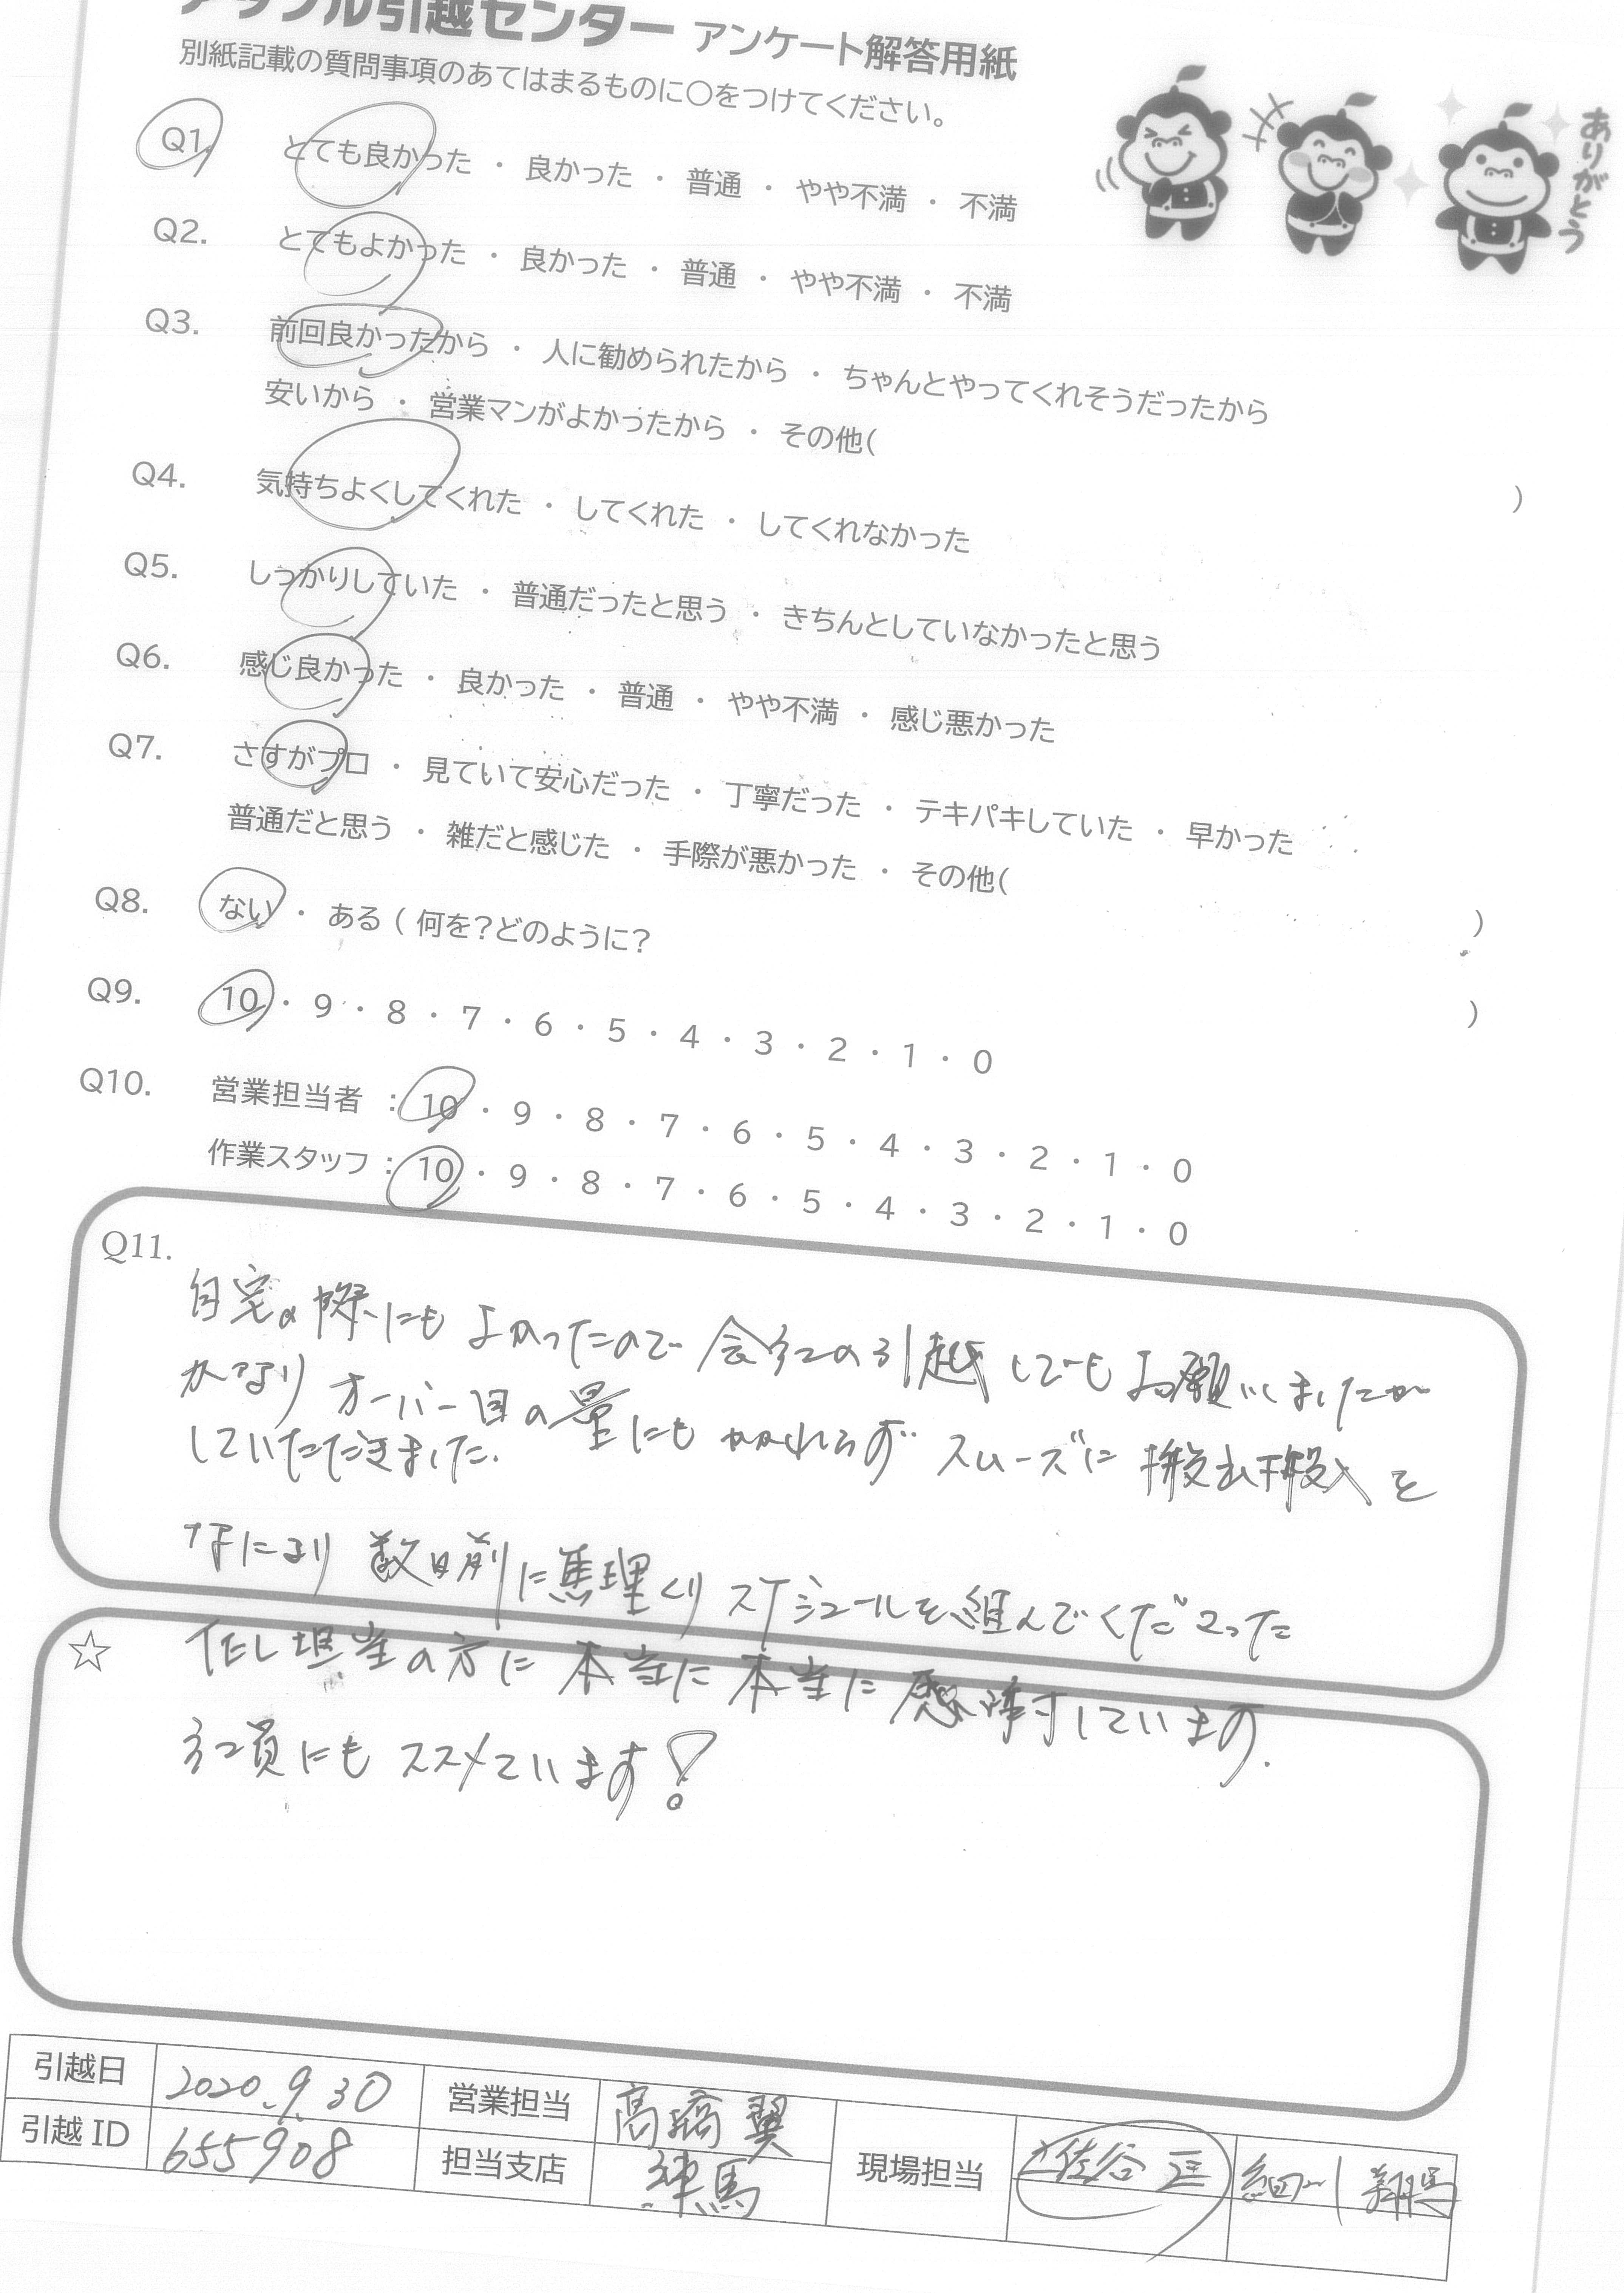 アップル引越センター アンケート解答用紙
別紙記載の質問事項のあてはまるものに○をつけてください。
ありがとう
Q1. とても良かった ・ 良かった ・ 普通 ・ やや不満 ・ 不満
Q2. とてもよかった ・ 良かった ・ 普通 ・ やや不満 ・ 不満
Q3. 前回良かったから ・ 人に勧められたから ・ ちゃんとやってくれそうだったから
安いから ・ 営業マンがよかったから ・ その他( )
Q4. 気持ちよくしてくれた ・ してくれた ・ してくれなかった
Q5. しっかりしていた ・ 普通だったと思う ・ きちんとしていなかったと思う
Q6. 感じ良かった ・ 良かった ・ 普通 ・ やや不満 ・ 感じ悪かった
Q7. さすがプロ ・ 見ていて安心だった ・ 丁寧だった ・ テキパキしていた ・ 早かった
普通だと思う ・ 雑だと感じた ・ 手際が悪かった ・ その他( )
Q8. ない ・ ある ( 何を?どのように? )
Q9. 10 ・ 9 ・ 8 ・ 7 ・ 6 ・ 5 ・ 4 ・ 3 ・ 2 ・ 1 ・ 0
Q10. 営業担当者 : 10 ・ 9 ・ 8 ・ 7 ・ 6 ・ 5 ・ 4 ・ 3 ・ 2 ・ 1 ・ 0
作業スタッフ : 10 ・ 9 ・ 8 ・ 7 ・ 6 ・ 5 ・ 4 ・ 3 ・ 2 ・ 1 ・ 0
Q11.
自宅の際にもよかったので会社の引越しでもお願いしましたが
かなりオーバー目の量にもかかわらずスムーズに搬出搬入を
していただきました.
なにより数日前に無理くりスケジュールを組んでくださった
☆ 担当の方に本当に本当に感謝しています.
社員にもススメています!
引越日 2020.9.30 営業担当 高橋 翼
引越ID 655908 担当支店 練馬 現場担当 佐谷 匡 細川 翔馬